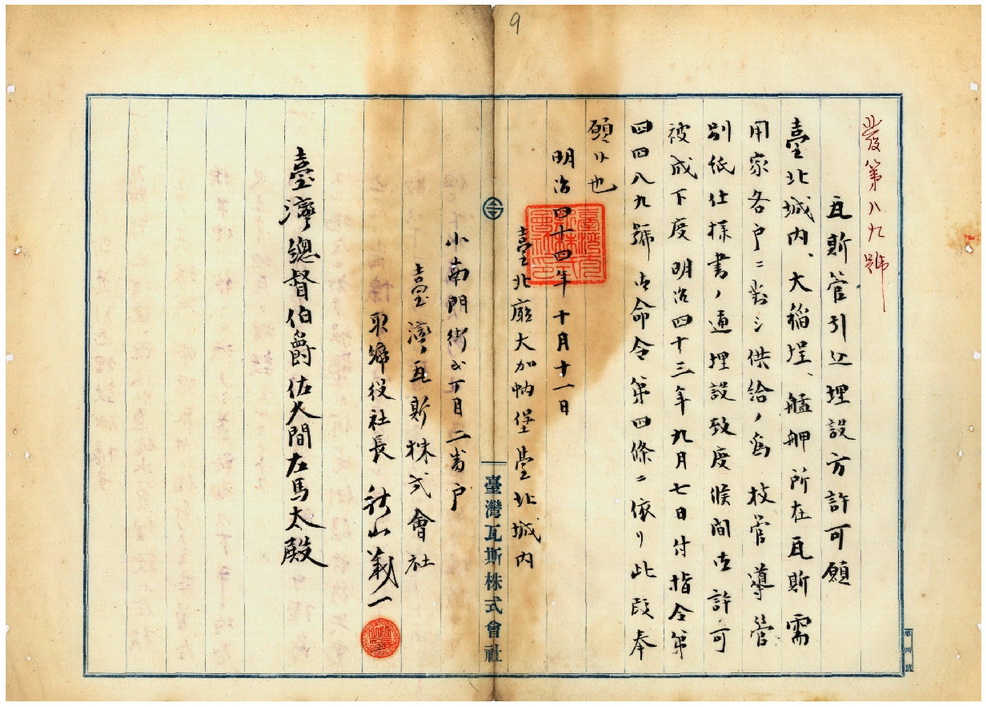 9
發第八九號
瓦斯管引込埋設方許可願
臺北城內、大稻埕、艋舺所在瓦斯需
用家各戶ニ對シ供給ノ為枝管導管
別紙仕樣書ノ通埋設致度候間御許可
被成下度明治四十三年九月七日付指令第
四四八九號御命令第四條ニ依リ此段奉
願候也
明治四十四年十月十一日
臺北廳大加蚋堡臺北城內
小南門街弍丁目二番戶
臺灣瓦斯株式會社
取締役社長 義一
臺灣總督伯爵佐久間左馬太殿
臺灣瓦斯株式會社
第四號